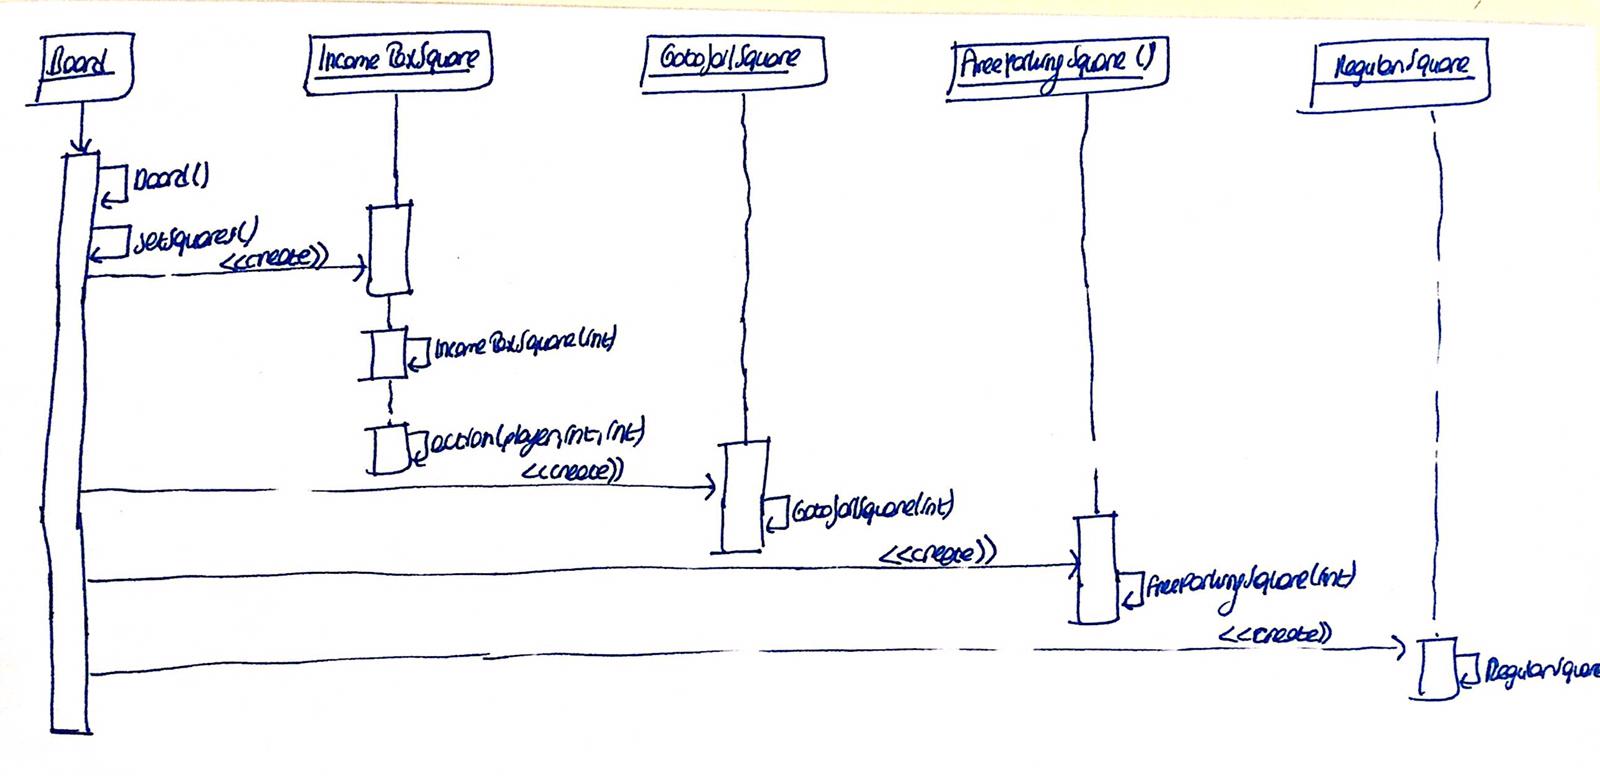 Board
Income TaxSquare
GotoJailSquare
FreeParkingSquare ()
RegularSquare
Board()
setSquares()
<<create>>
IncomeTaxSquare(int)
action(player,int,int)
<<create>>
GotoJailSquare(int)
<<create>>
FreeParkingSquare(int)
<<create>>
RegularSquare